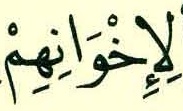 لِإِخْوَانِهِمْ